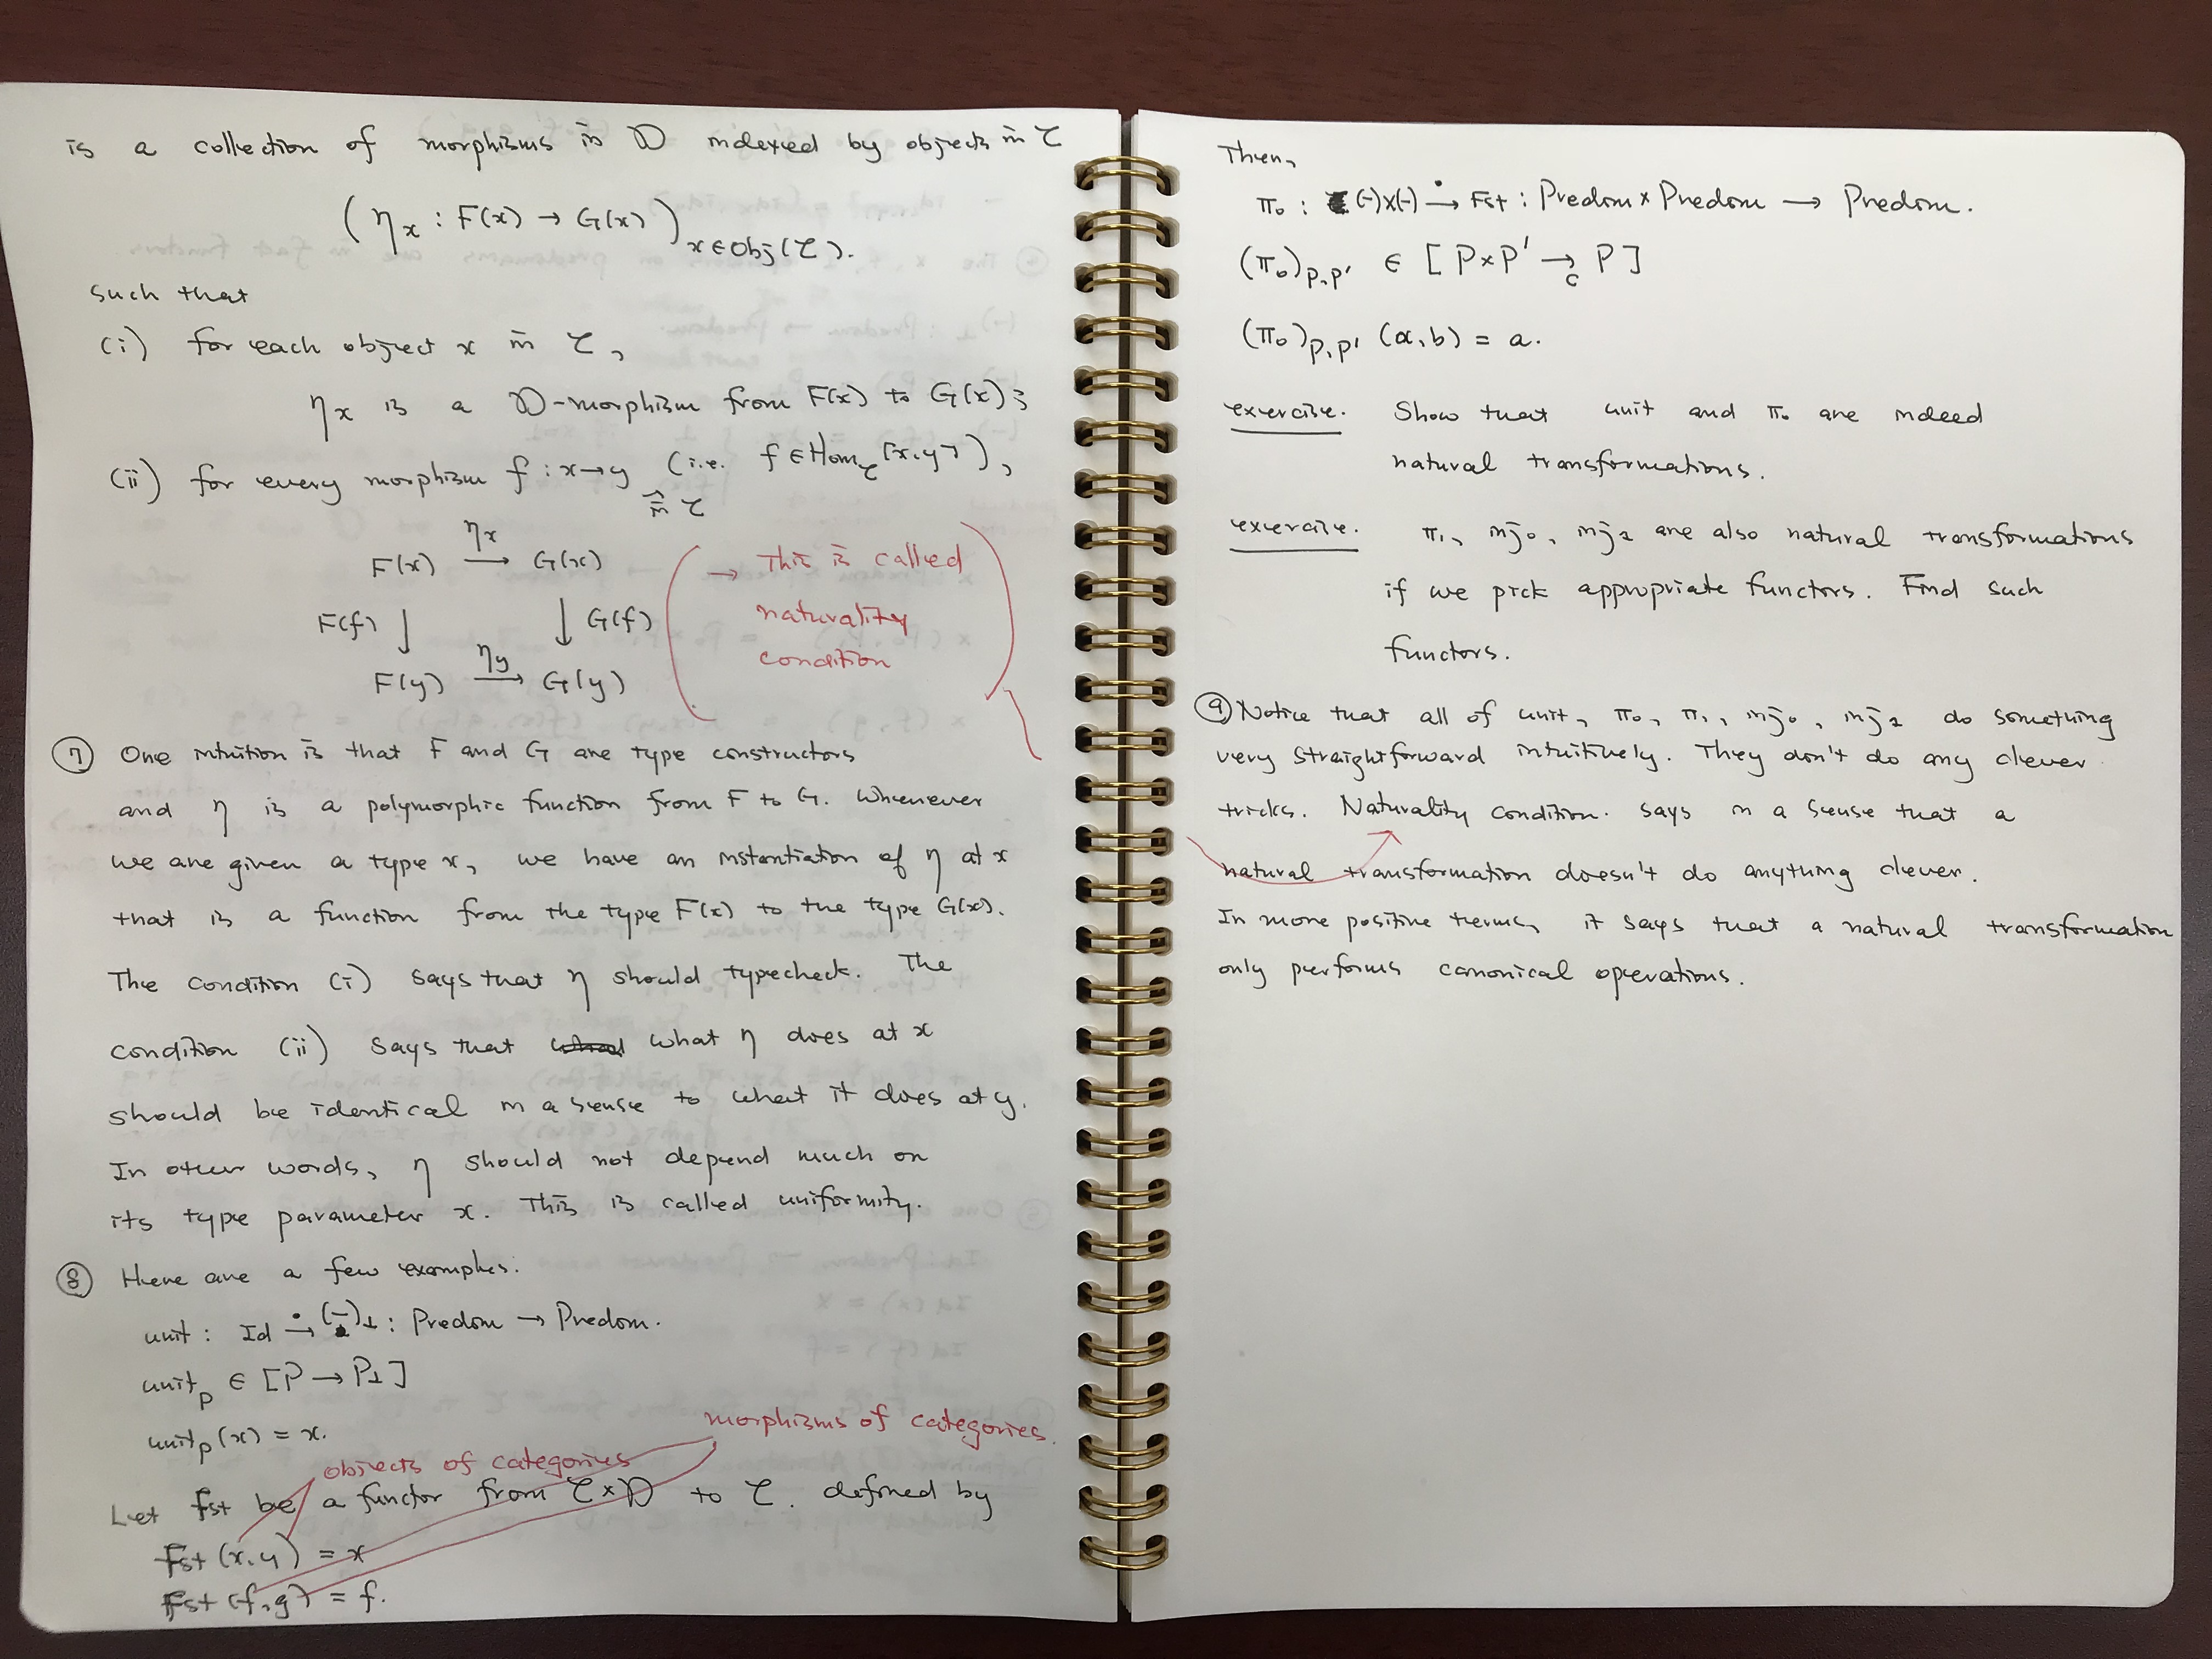 is a collection of morphisms in D indexed by objects in C
(η_x : F(x) → G(x))_{x∈Obj(C)}.
such that
(i) for each object x in C,
η_x is a D-morphism from F(x) to G(x);
(ii) for every morphism f : x→y in C (i.e. f ∈ Hom_C[x,y]),
F(x) —η_x→ G(x)
F(f) ↓ ↓ G(f)
F(y) —η_y→ G(y)
( → This is called
naturality
condition )
⑦ One intuition is that F and G are type constructors
and η is a polymorphic function from F to G. Whenever
we are given a type x, we have an instantiation of η at x
that is a function from the type F(x) to the type G(x).
The condition (i) says that η should typecheck. The
condition (ii) says that what η does at x
should be identical in a sense to what it does at y.
In other words, η should not depend much on
its type parameter x. This is called uniformity.
⑧ Here are a few examples.
unit : Id →̇ (-)⊥ : Predom → Predom.
unit_P ∈ [P → P⊥]
unit_P(x) = x.
morphisms of categories.
objects of categories
Let Fst be a functor from C×D to C. defined by
Fst (x,y) = x
Fst (f,g) = f.
Then,
π₀ : (-)×(-) →̇ Fst : Predom × Predom → Predom.
(π₀)_{P,P'} ∈ [P×P' →_c P]
(π₀)_{P,P'} (a,b) = a.
exercise. Show that unit and π₀ are indeed
natural transformations.
exercise. π₁, inj₀, inj₁ are also natural transformations
if we pick appropriate functors. Find such
functors.
⑨ Notice that all of unit, π₀, π₁, inj₀, inj₁ do something
very straightforward intuitively. They don't do any clever
tricks. Naturality condition. says in a sense that a
natural transformation doesn't do anything clever.
In more positive terms, it says that a natural transformation
only performs canonical operations.